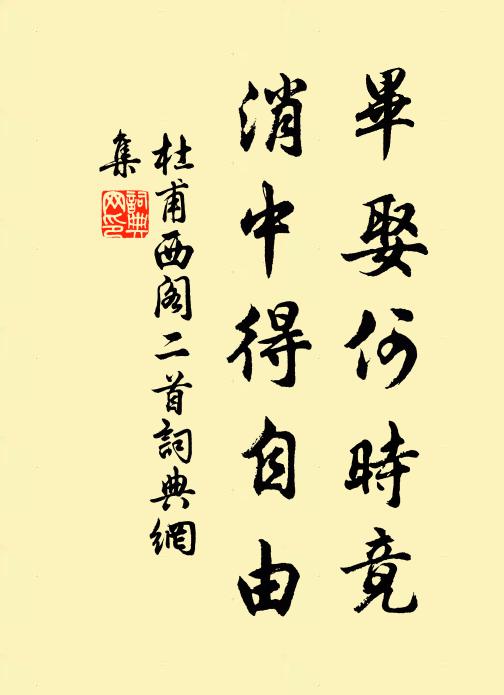 畢娶何時竟
消中得自由
杜甫西閣二首詞典網
集
詞典
网印